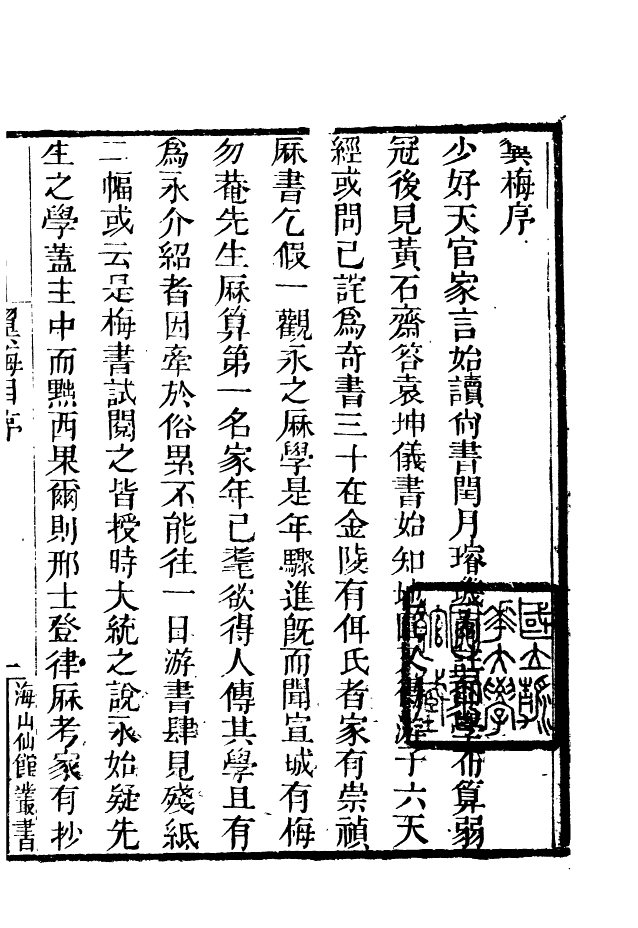 翼梅序
少好天官家言始讀尚書閏月璿璣兩注即學布算弱
冠後見黃石齋答袁坤儀書始知地圓得游子六天
經或問已詫爲奇書三十在金陵有佴氏者家有崇禎
厤書乞假一觀永之厤學是年驟進旣而聞宣城有梅
勿菴先生厤算第一名家年已耄欲得人傳其學且有
爲永介紹者因牽於俗累不能往一日游書肆見殘紙
二幅或云是梅書試閱之皆授時大統之說永始疑先
生之學蓋主中而黜西果爾則邢士登律厤考家有抄
翼梅自序
一
海山仙館叢書
國立清
華大學